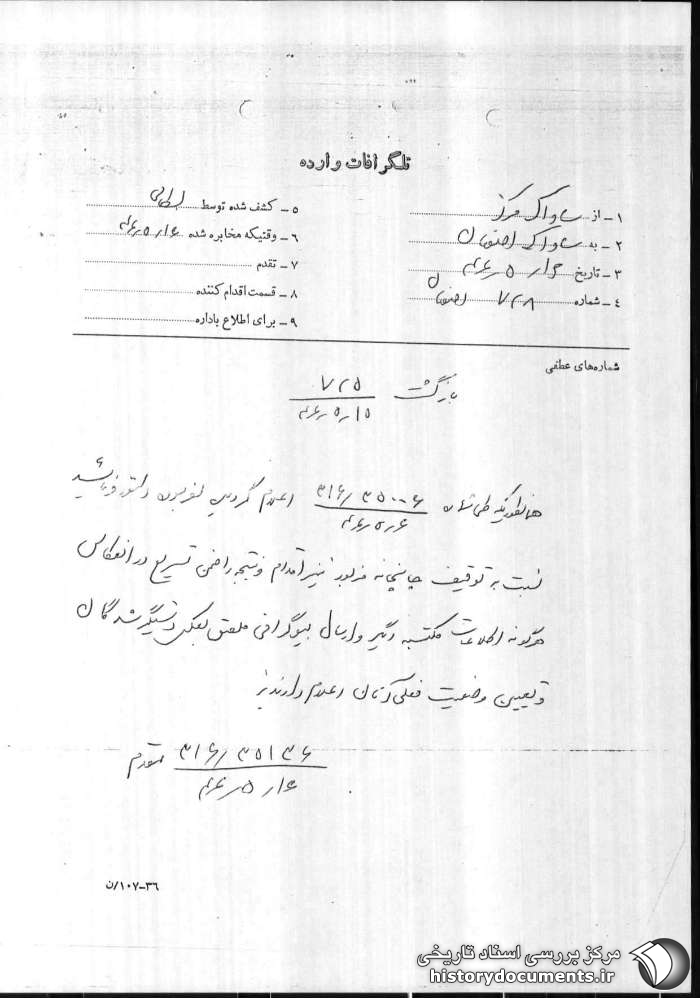 تلگرافات وارده
۱ـ از ساواک مرکز
۲ـ به ساواک اصفهان
۳ـ تاریخ
۴ـ شماره ۷۲۸ اصفهان
۵ـ کشف شده توسط
۶ـ وقتیکه مخابره شده
۷ـ تقدم
۸ـ قسمت اقدام کننده
۹ـ برای اطلاع باداره
شماره‌های عطفی
بازگشت ۷۲۵
همانطوریکه طی شماره اعلام گردید دستور فرمائید
نسبت به توقیف چاپخانه مزبور نیز اقدام و نتیجه را ضمن تسریع در انعکاس
هرگونه اطلاعات مکتسبه دیگر و ارسال بیوگرافی ملصق بعکس دستگیرشدگان
و تعیین وضعیت فعلی آنان اعلام دارند
۳۱۶/۳۵۱۳۶ مقدم
۳۶-۱۰۷/ن
مرکز بررسی اسناد تاریخی
historydocuments.ir